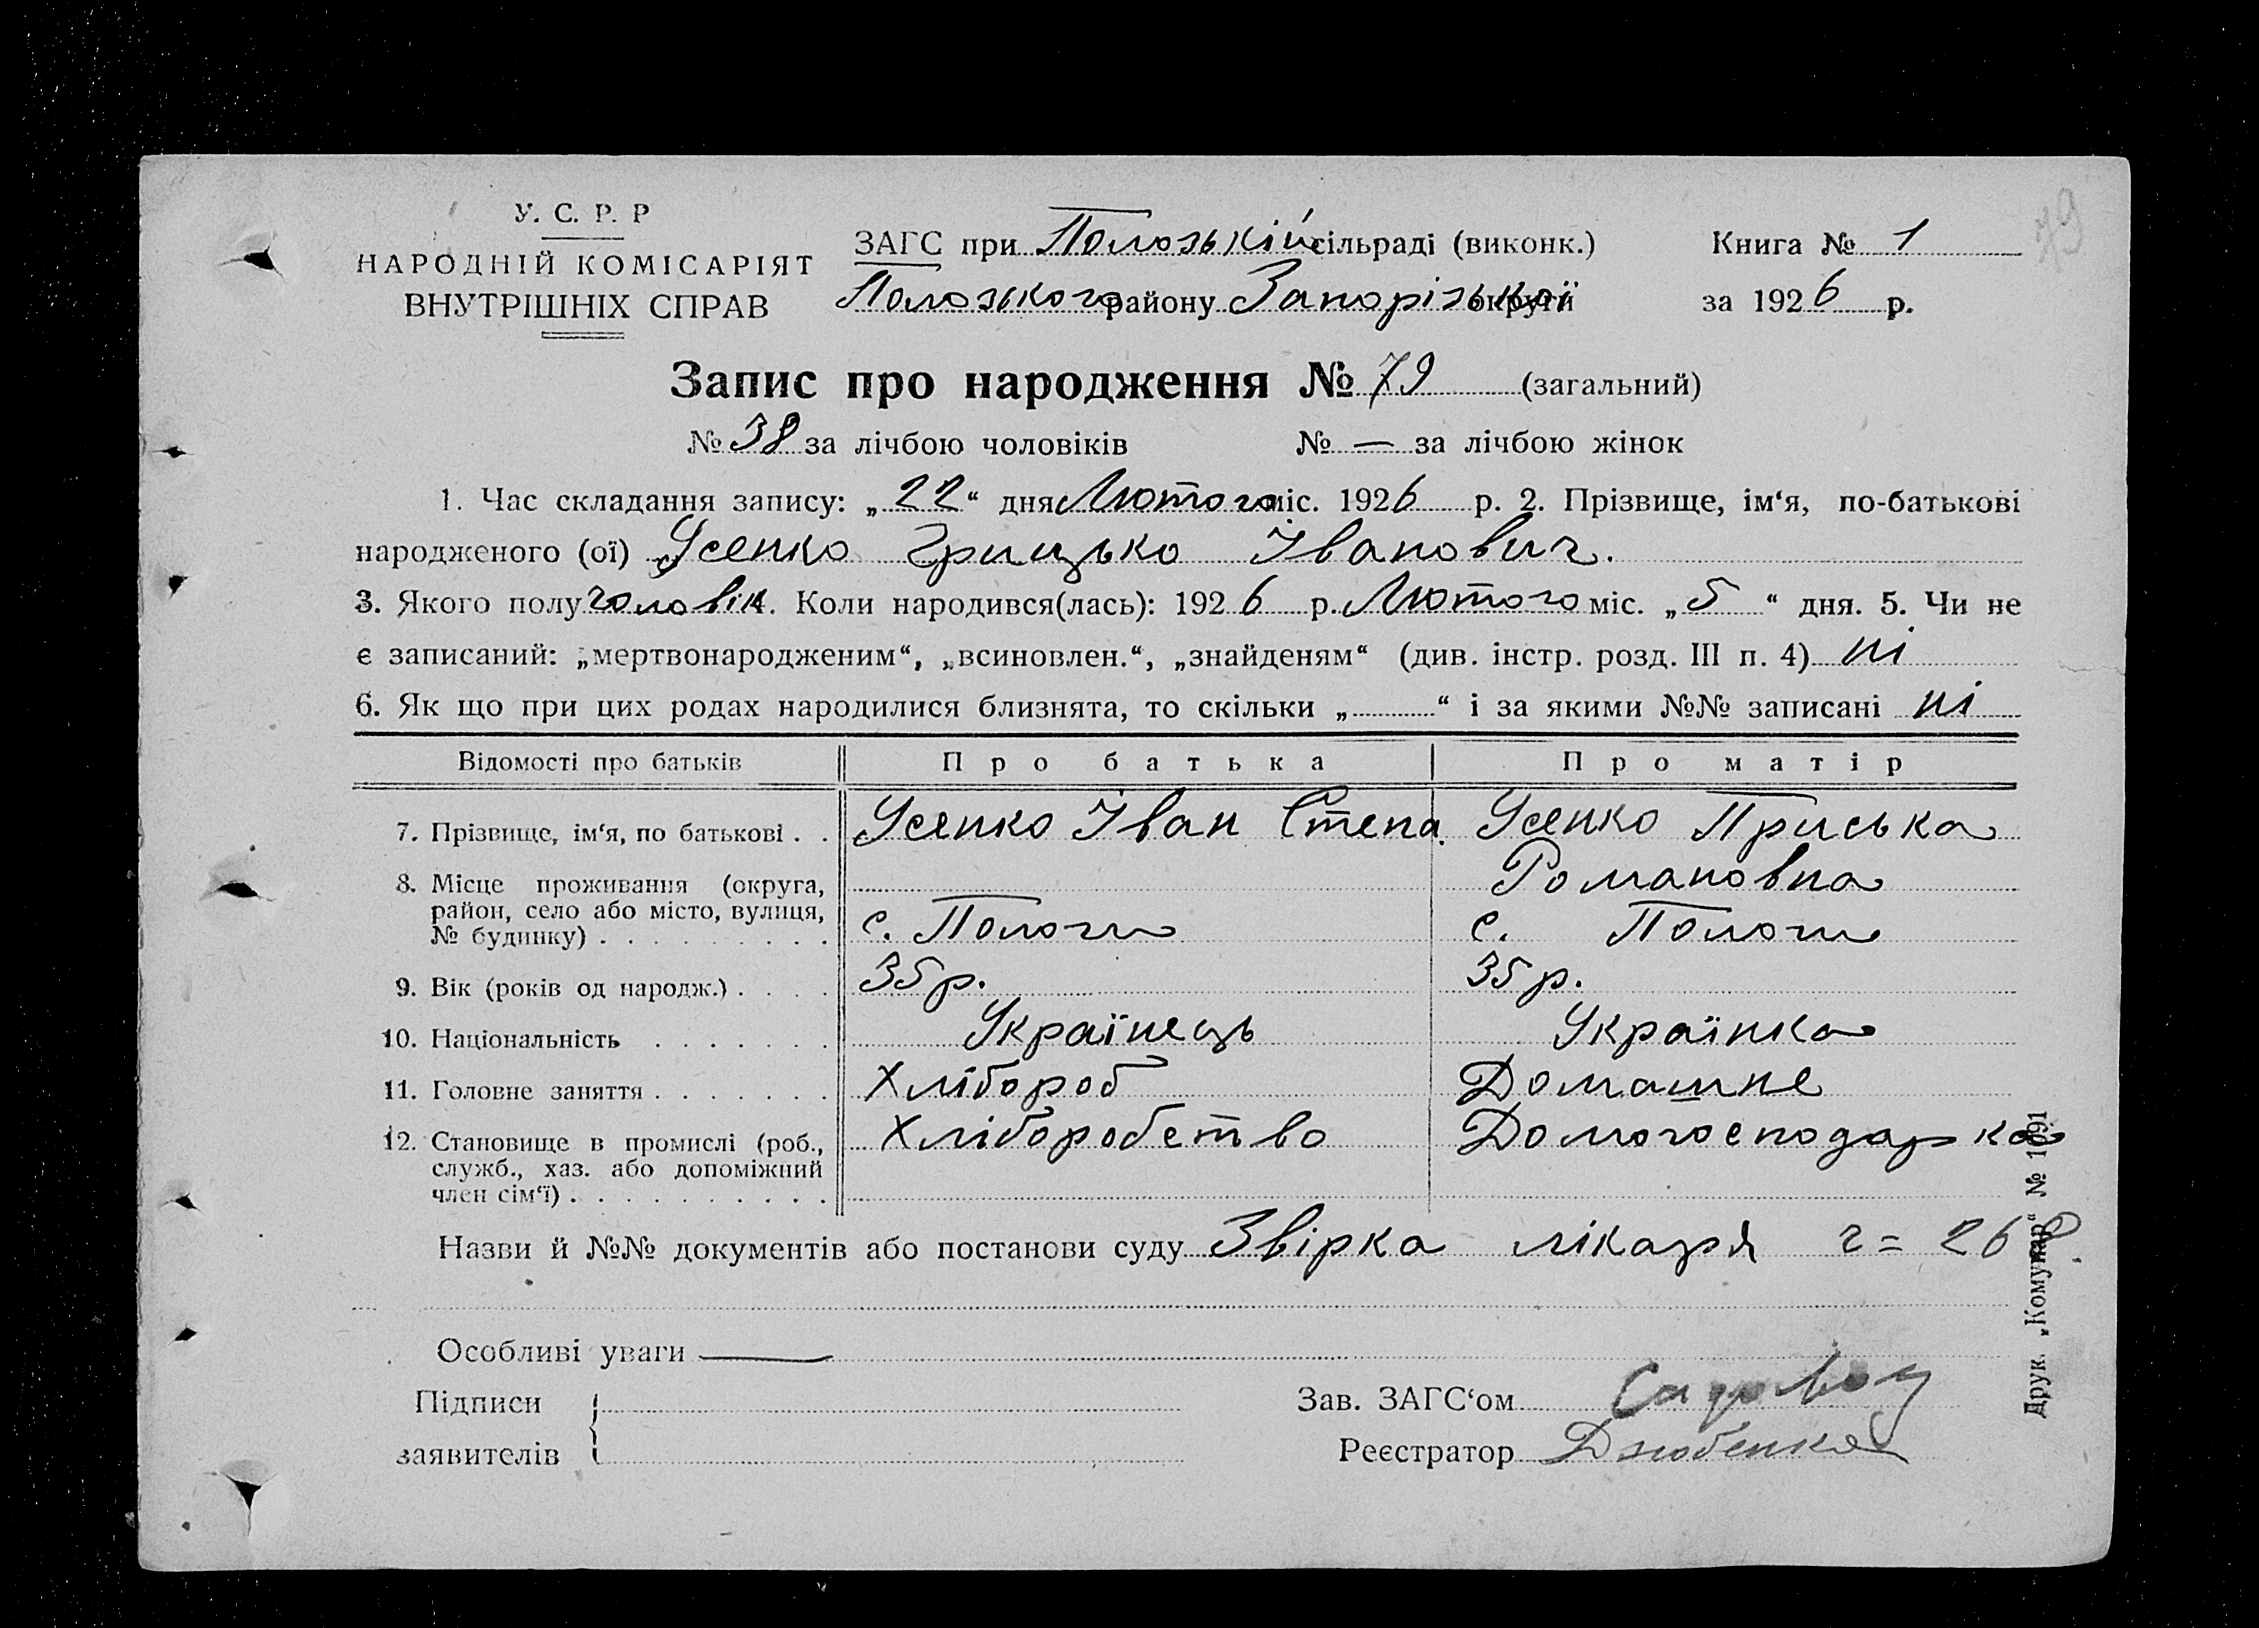 79
У. С. Р. Р
НАРОДНІЙ КОМІСАРІЯТ
ВНУТРІШНІХ СПРАВ
ЗАГС при Полозькій сільраді (виконк.)
Полозького району Запорізької округи
Книга № 1
за 1926 р.
Запис про народження № 79 (загальний)
№ 38 за лічбою чоловіків № — за лічбою жінок
1. Час складання запису: „22“ дня Лютого міс. 1926 р. 2. Прізвище, ім‘я, по-батькові
народженого (ої) Усенко Грицько Іванович.
3. Якого полу чоловік. Коли народився(лась): 1926 р. Лютого міс. „5“ дня. 5. Чи не
є записаний: „мертвонародженим“, „всиновлен.“, „знайденям“ (див. інстр. розд. III п. 4) ні
6. Як що при цих родах народилися близнята, то скільки „ “ і за якими №№ записані ні
Відомості про батьків Про батька Про матір
7. Прізвище, ім‘я, по батькові . . Усенко Іван Степа. Усенко Приська
Романовна
8. Місце проживання (округа,
район, село або місто, вулиця,
№ будинку) . . . . . . . . . с. Пологи с. Пологи
9. Вік (років од народж.) . . . . 35 р. 35 р.
10. Національність . . . . . . . Українець Українка
11. Головне заняття . . . . . . . Хлібороб Домашне
12. Становище в промислі (роб., Хліборобство Домогосподарка
служб., хаз. або допоміжний
член сім‘ї) . . . . . . . . . .
Назви й №№ документів або постанови суду Звірка лікаря ч= 268.
Особливі уваги —
Підписи
заявителів
Зав. ЗАГС‘ом
Реєстратор Дзюбенко
Друк. „Комунар“ № 1091